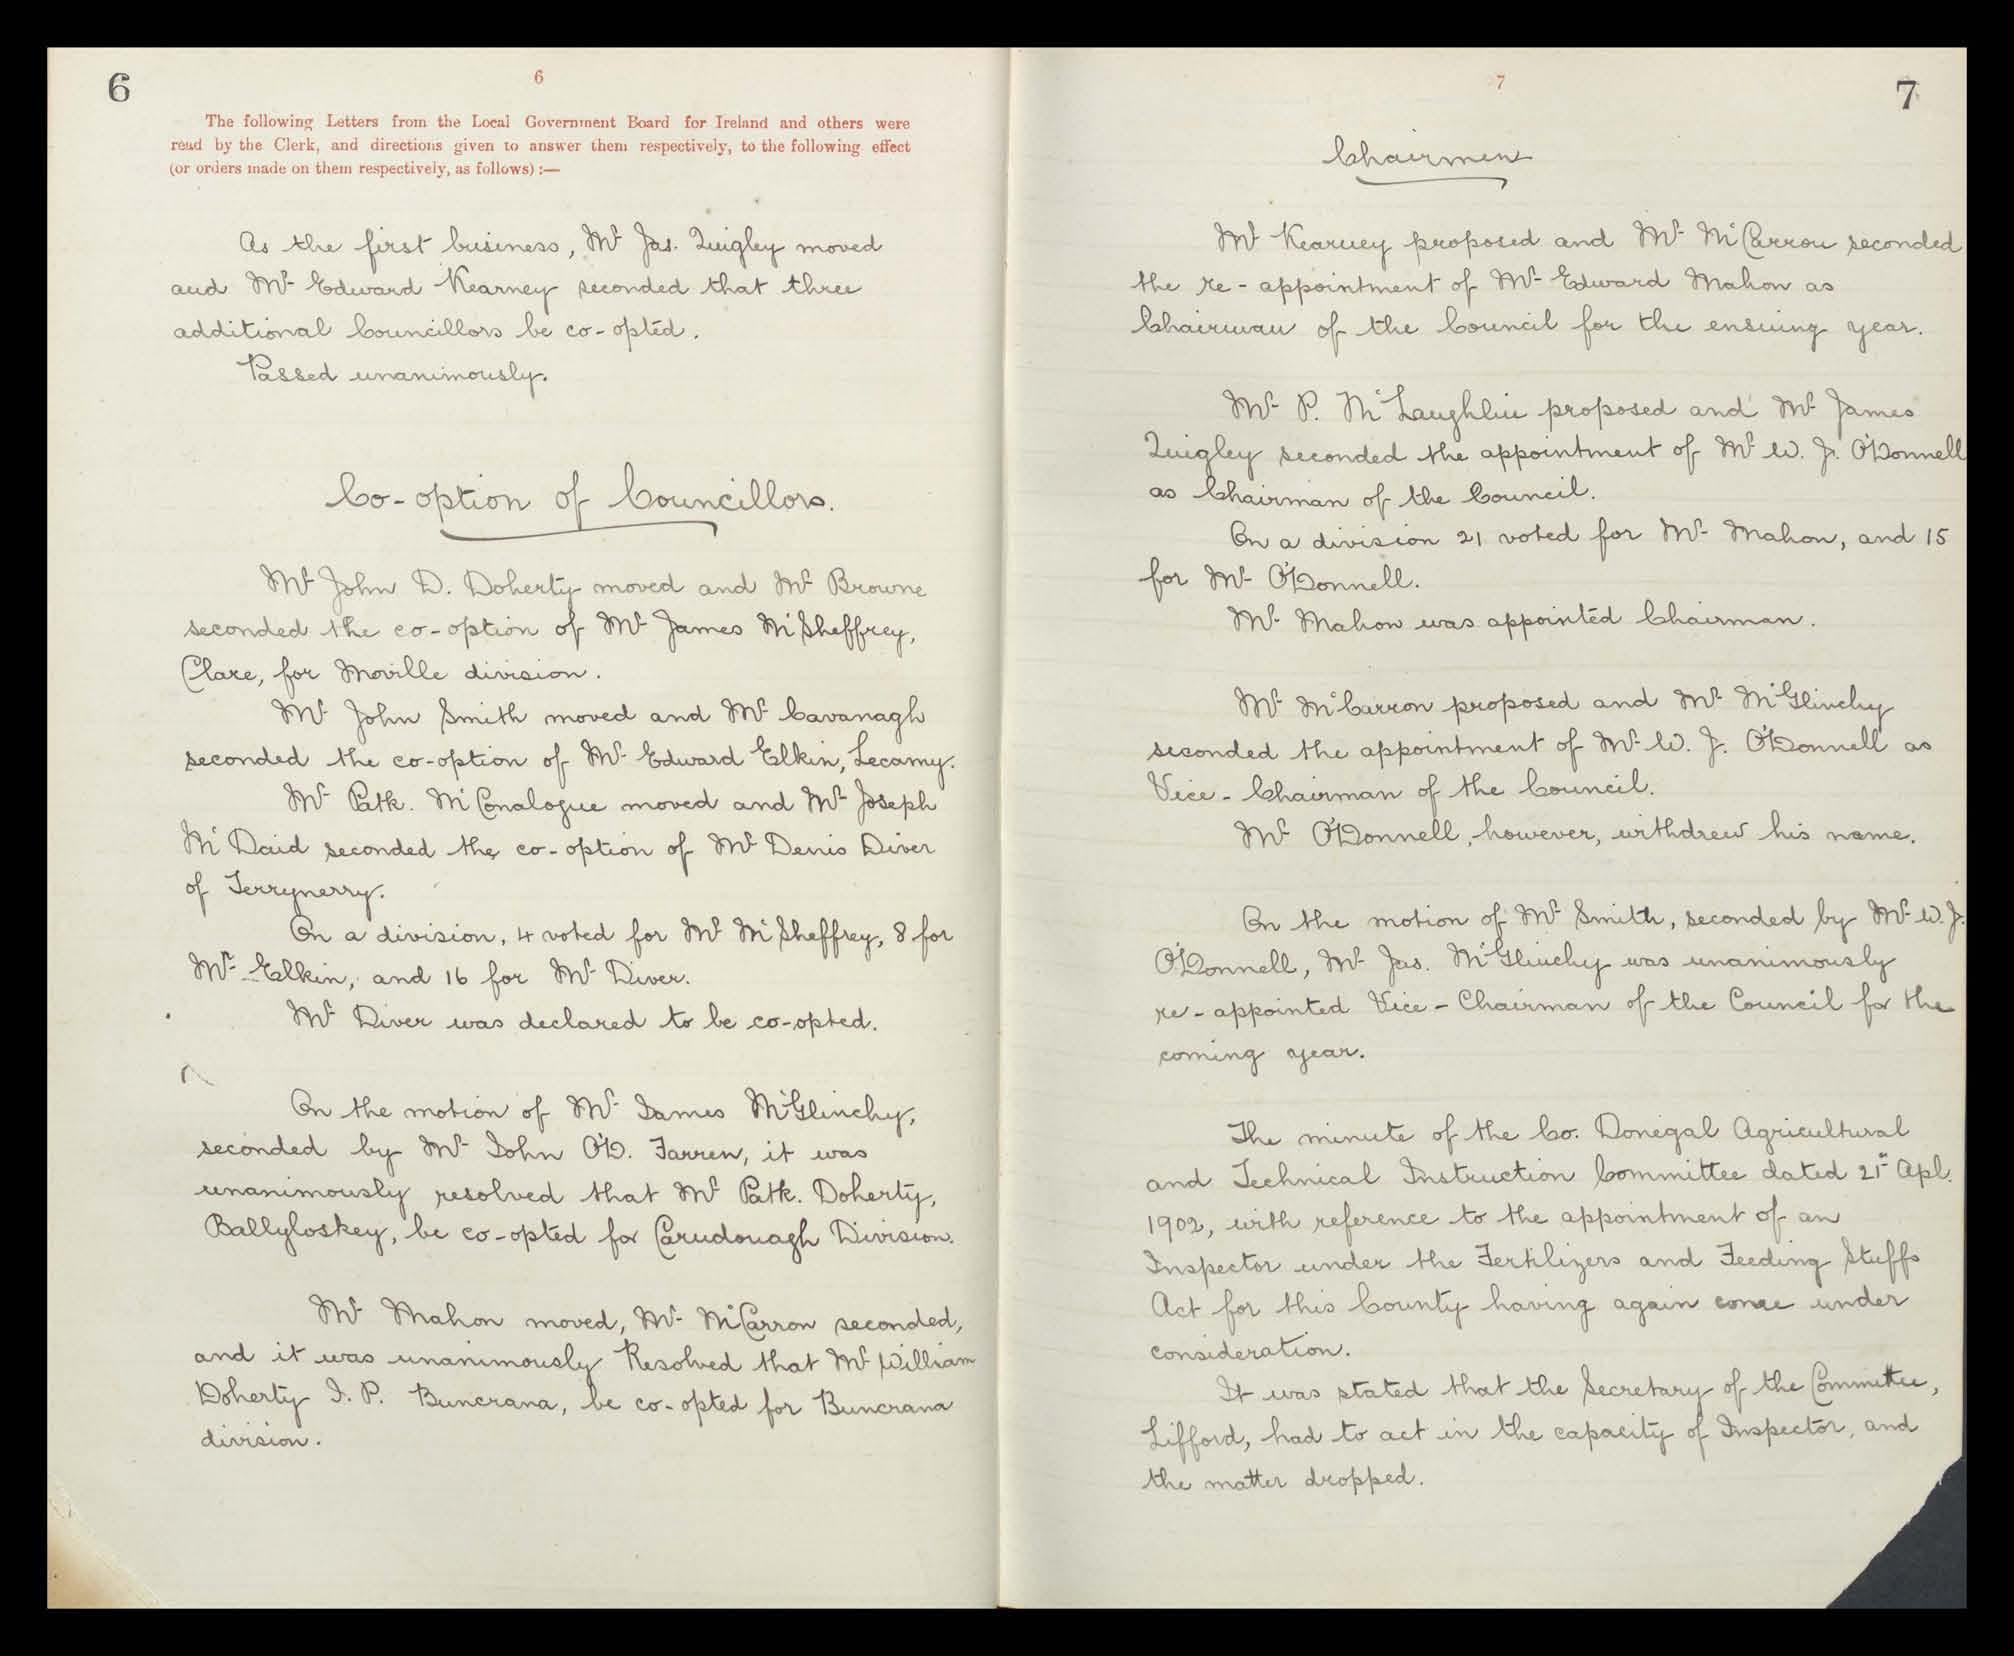 6
6
The following Letters from the Local Government Board for Ireland and others were
read by the Clerk, and directions given to answer them respectively, to the following effect
(or orders made on them respectively, as follows) :—
As the first business, Mr Jas. Quigley moved
and Mr Edward Kearney seconded that three
additional Councillors be co-opted.
Passed unanimously.
Co-option of Councillors.
Mr John D. Doherty moved and Mr Browne
seconded the co-option of Mr James McSheffrey,
Clare, for Moville division.
Mr John Smith moved and Mr Cavanagh
seconded the co-option of Mr Edward Elkin, Lecamy.
Mr Patk. McConalogue moved and Mr Joseph
McDaid seconded the co-option of Mr Denis Diver
of Terrynerry.
On a division, 4 voted for Mr McSheffrey, 8 for
Mr Elkin, and 16 for Mr Diver.
Mr Diver was declared to be co-opted.
On the motion of Mr James McGlinchy,
seconded by Mr John O'D. Farren, it was
unanimously resolved that Mr Patk. Doherty,
Ballyloskey, be co-opted for Carndonagh Division.
Mr Mahon moved, Mr McCarron seconded,
and it was unanimously Resolved that Mr William
Doherty J. P. Buncrana, be co-opted for Buncrana
division.
7
7
Chairmen
Mr Kearney proposed and Mr McCarron seconded
the re-appointment of Mr Edward Mahon as
Chairman of the Council for the ensuing year.
Mr P. McLaughlin proposed and Mr James
Quigley seconded the appointment of Mr W. J. O'Donnell
as Chairman of the Council.
On a division 21 voted for Mr Mahon, and 15
for Mr O'Donnell.
Mr Mahon was appointed Chairman.
Mr McCarron proposed and Mr McGlinchy
seconded the appointment of Mr W. J. O'Donnell as
Vice-Chairman of the Council.
Mr O'Donnell, however, withdrew his name.
On the motion of Mr Smith, seconded by Mr W. J.
O'Donnell, Mr Jas. McGlinchy was unanimously
re-appointed Vice-Chairman of the Council for the
coming year.
The minute of the Co. Donegal Agricultural
and Technical Instruction Committee dated 21st Apl.
1902, with reference to the appointment of an
Inspector under the Fertilizers and Feeding Stuffs
Act for this County having again come under
consideration.
It was stated that the Secretary of the Committee,
Lifford, had to act in the capacity of Inspector, and
the matter dropped.